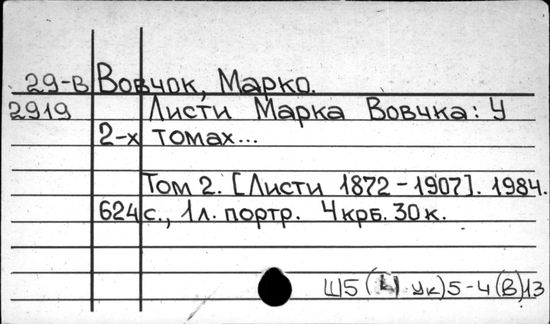 29-В Вовчок, Марко.
2919 Листи Марка Вовчка: У
2-х томах...
Том 2. [Листи 1872-1907]. 1984.
624 с., 1л. портр. 4крб. 30к.
Ш5(4 Ук)5-4(В),13